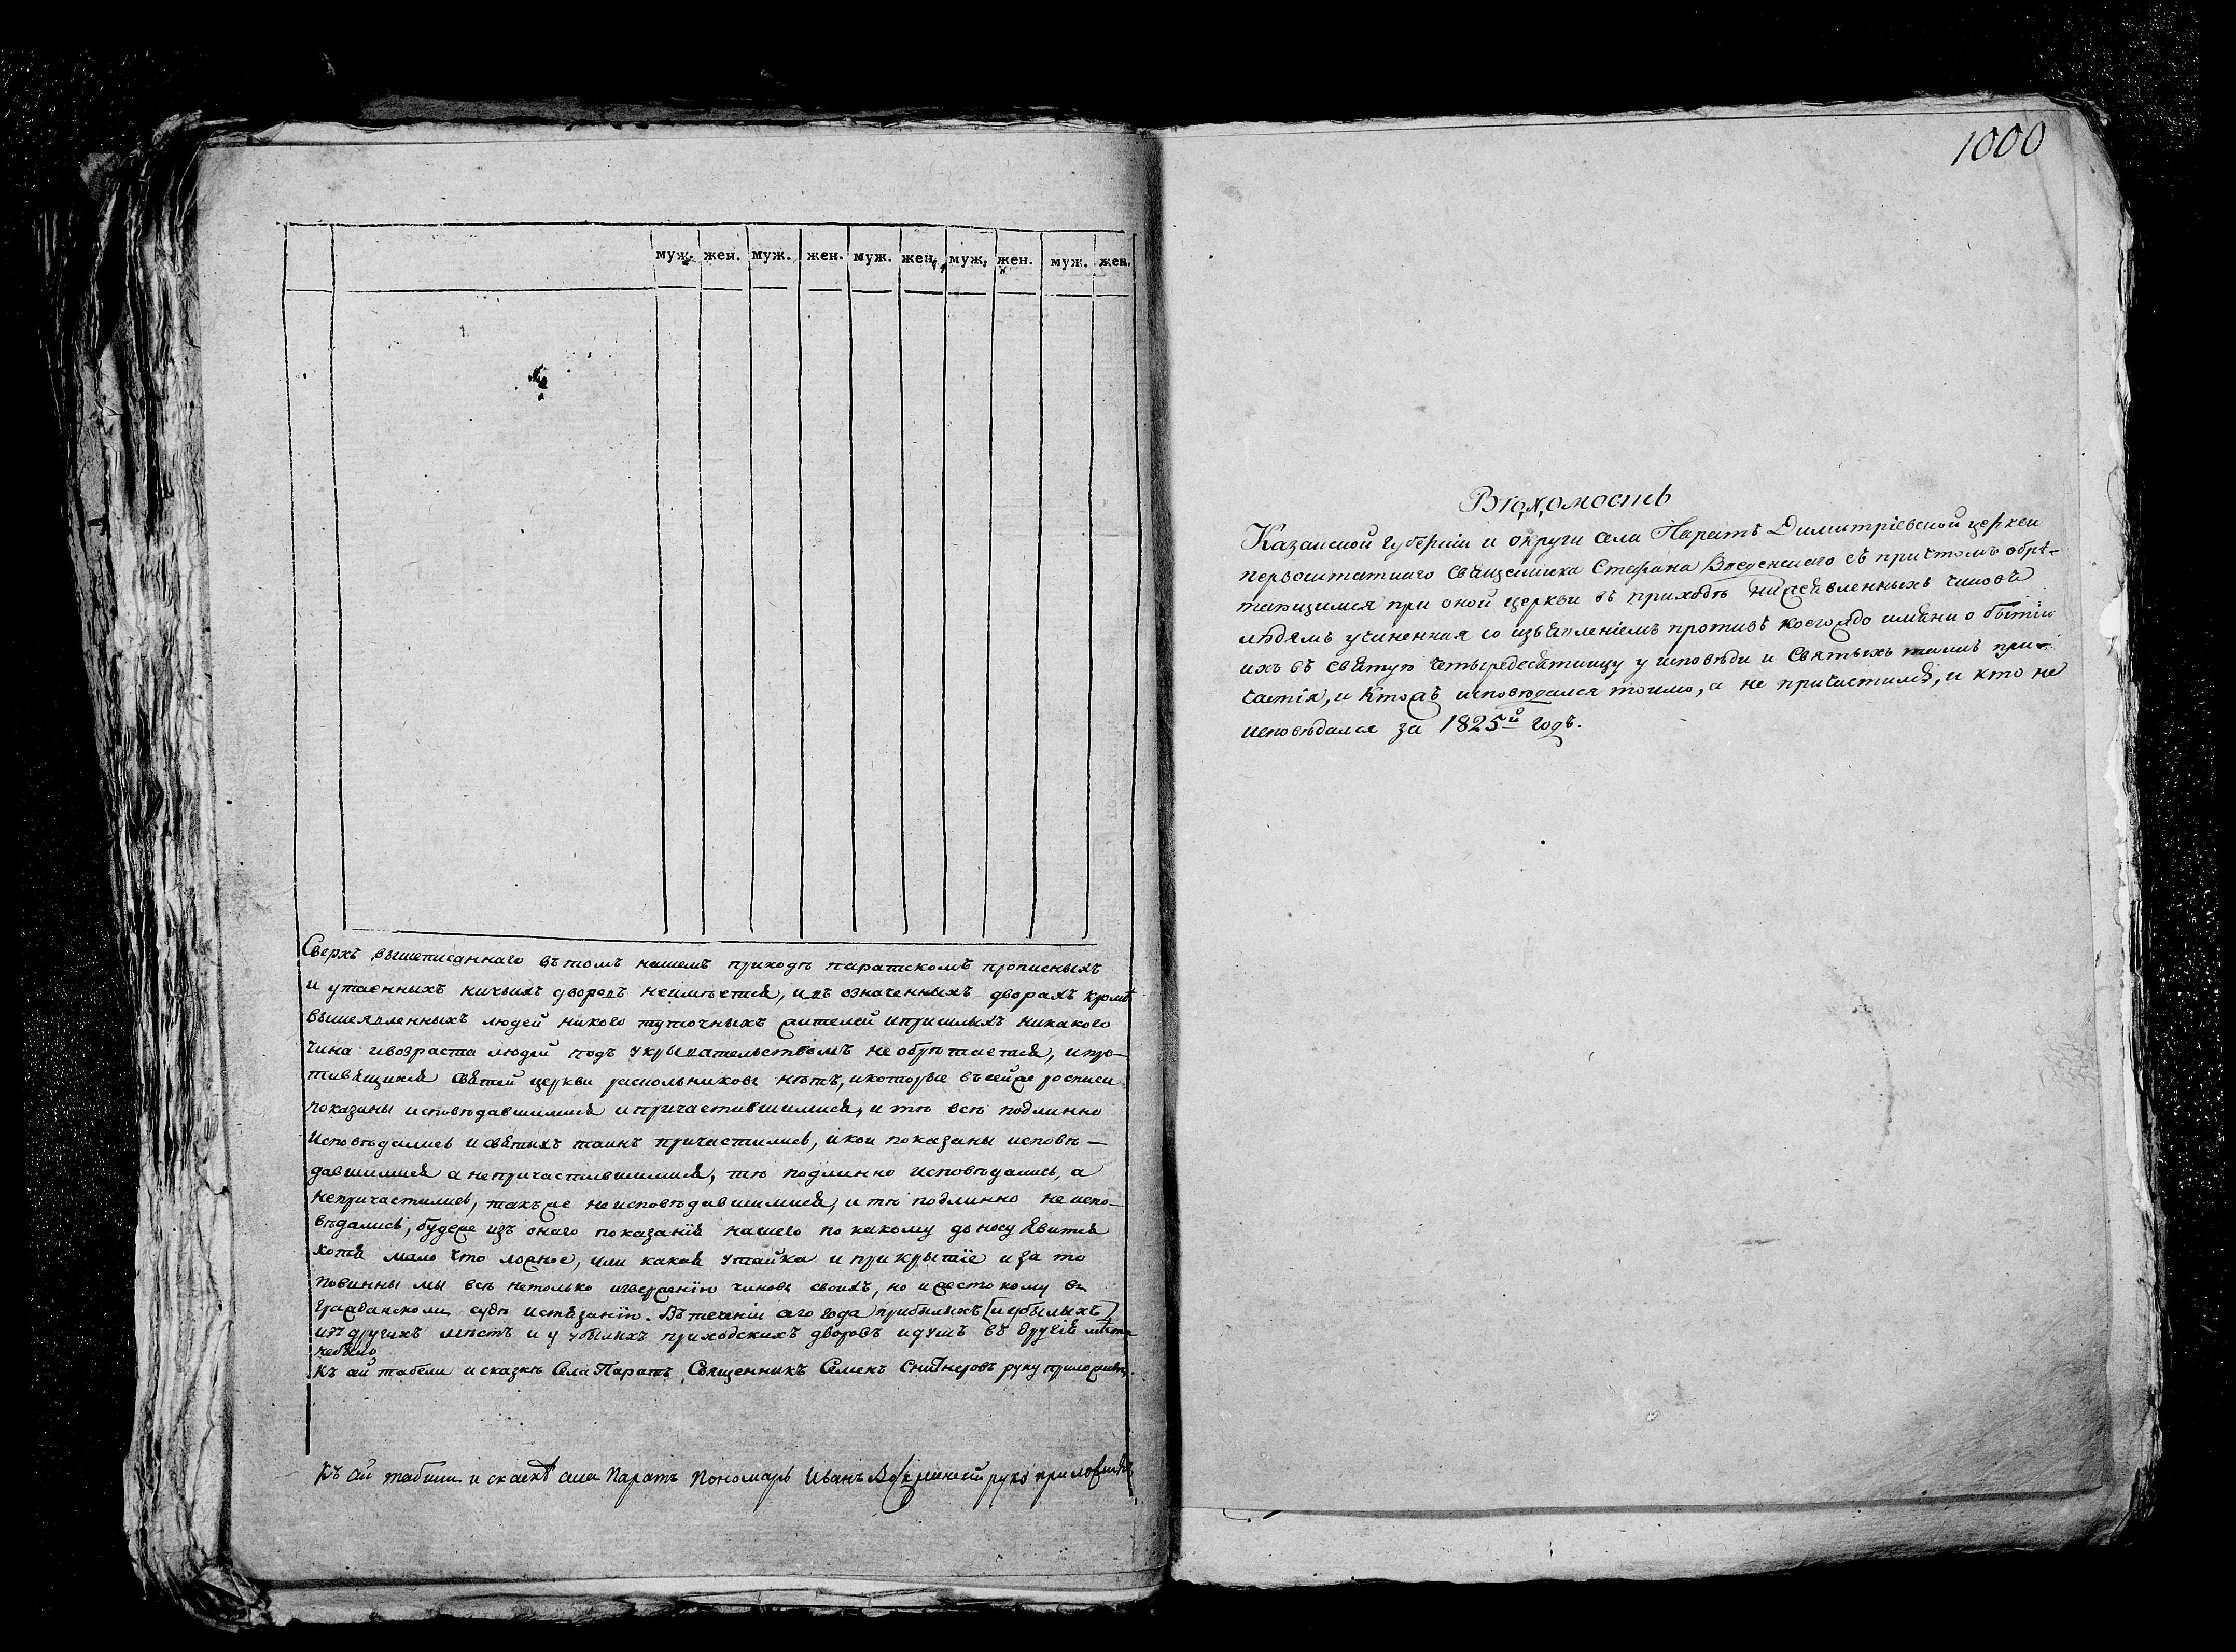 муж. жен. муж. жен. муж. жен. муж. жен. муж. жен.
Сверхъ вышеписаннаго въ томъ нашемъ приходѣ паратскомъ прописныхъ
и утаенныхъ ничьихъ дворовъ неимѣется, и въ означенныхъ дворахъ кромѣ
вышеявленныхъ людей никого туточныхъ жителей и пришлыхъ никакого
чина и возраста людей подъ укрывательствомъ не обрѣтается, и про-
тивящихся святей церкви раскольниковъ нѣтъ, и которые въ сейже росписи
показаны исповѣдавшимися и причастившимися, и тѣ всѣ подлинно
исповѣдались и святыхъ таинъ причастились, и кои показаны исповѣ-
давшимися а не причастившимися, тѣ подлинно исповѣдались, а
непричастились, такъже не исповѣдавшимися, и тѣ подлинно не испо-
вѣдались, будеже изъ онаго показанія нашего по какому доносу явится
хотя мало что ложное, или какая утайка и прикрытіе и за то
повинны мы всѣ нетолько изверженію чиновъ своихъ, но и жестокому въ
гражданскомъ судѣ истязанію. Въ теченіи сего года прибылыхъ [и убылыхъ]
изъ другихъ мѣстъ и у убылыхъ приходскихъ дворовъ и душъ въ другія мѣста
небыло
Къ сей табели и сказкѣ Села Паратъ Священникъ Семенъ руку приложилъ.
Къ сей табели и сказкѣ села Паратъ Пономарь Иванъ руку приложилъ
1000
Вѣдомость
Казанской губерніи и округи села Паратъ Димитріевской церкви
первоштатнаго Священника Стефана Введенскаго съ причтомъ обрѣ-
тающимся при оной церкви въ приходѣ нижеявленныхъ чиновъ
людямъ учиненная со изъявленіемъ противъ коегождо имяни о бытіи
ихъ въ святую четыредесятницу у исповѣди и Святыхъ таинъ при-
частія, и ктожъ исповѣдался токмо, а не причастился, и кто не
исповѣдался за 1825й годъ.